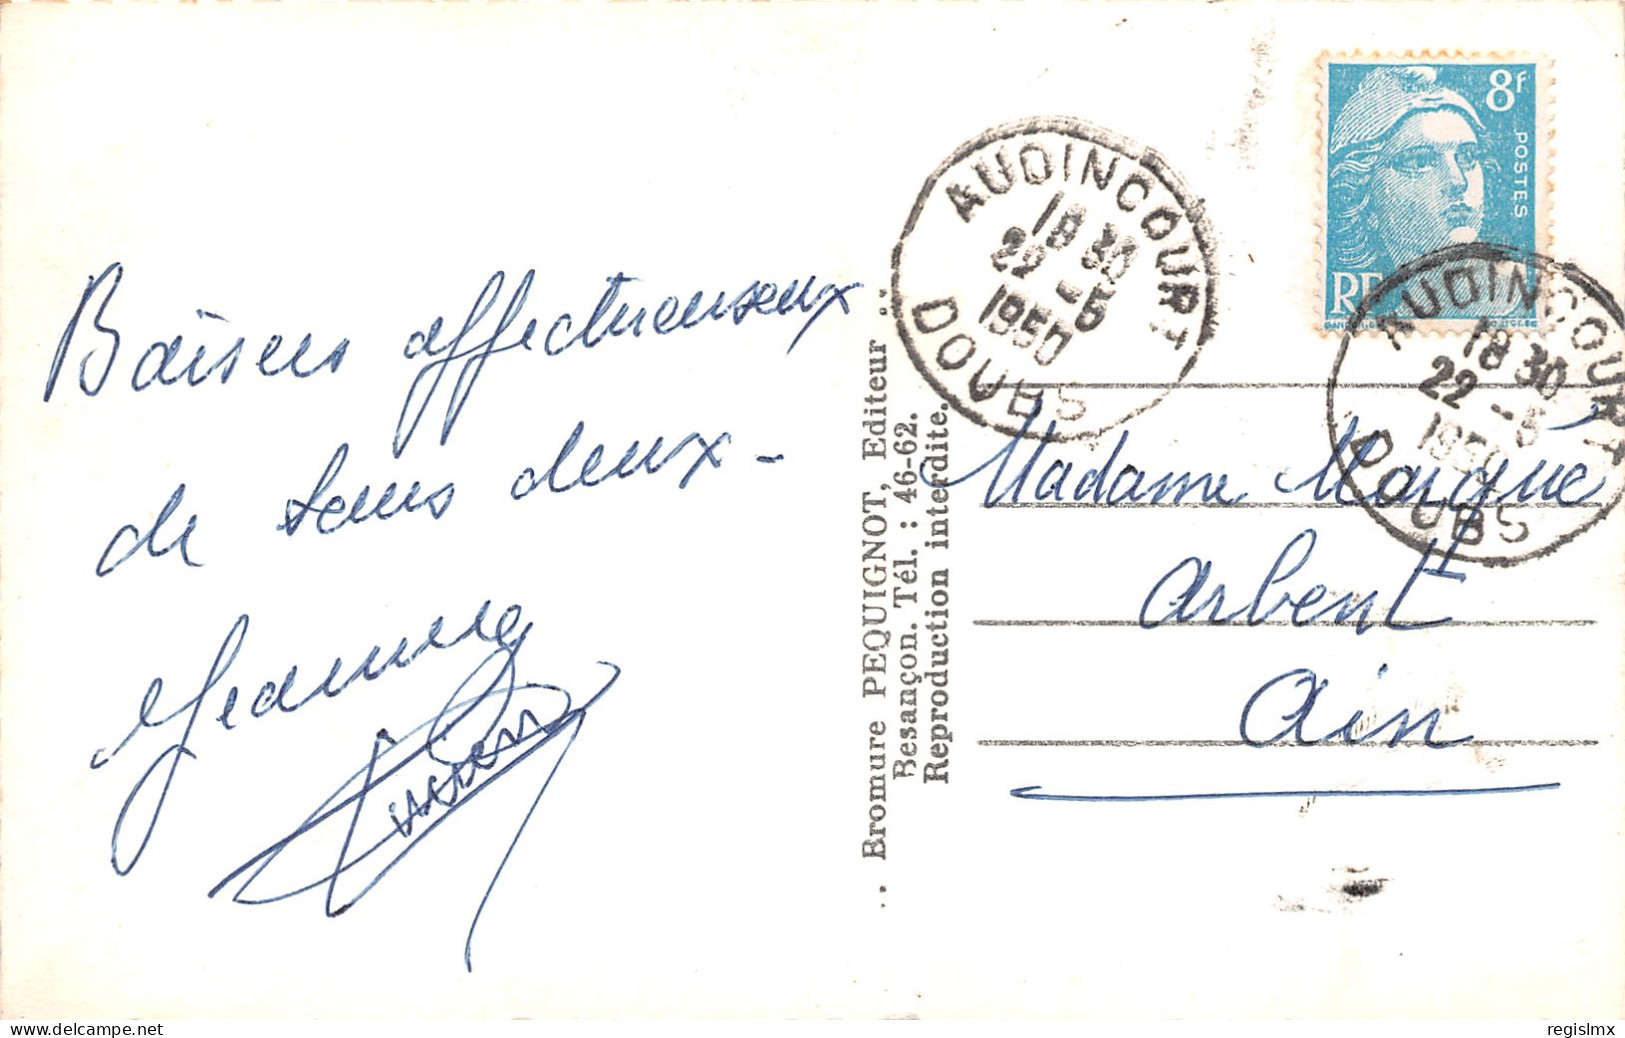 Baisers affectueux
de tous deux -
Jeanne
Bromure PEQUIGNOT, Editeur
Besançon. Tél. : 46-62.
Reproduction interdite.
AUDINCOURT
18 30
22 -5
1950
DOUBS
8F
POSTES
RF
AUDINCOURT
18 30
22 -5
1950
DOUBS
Madame
Arbent
Ain
www.delcampe.net
regislmx